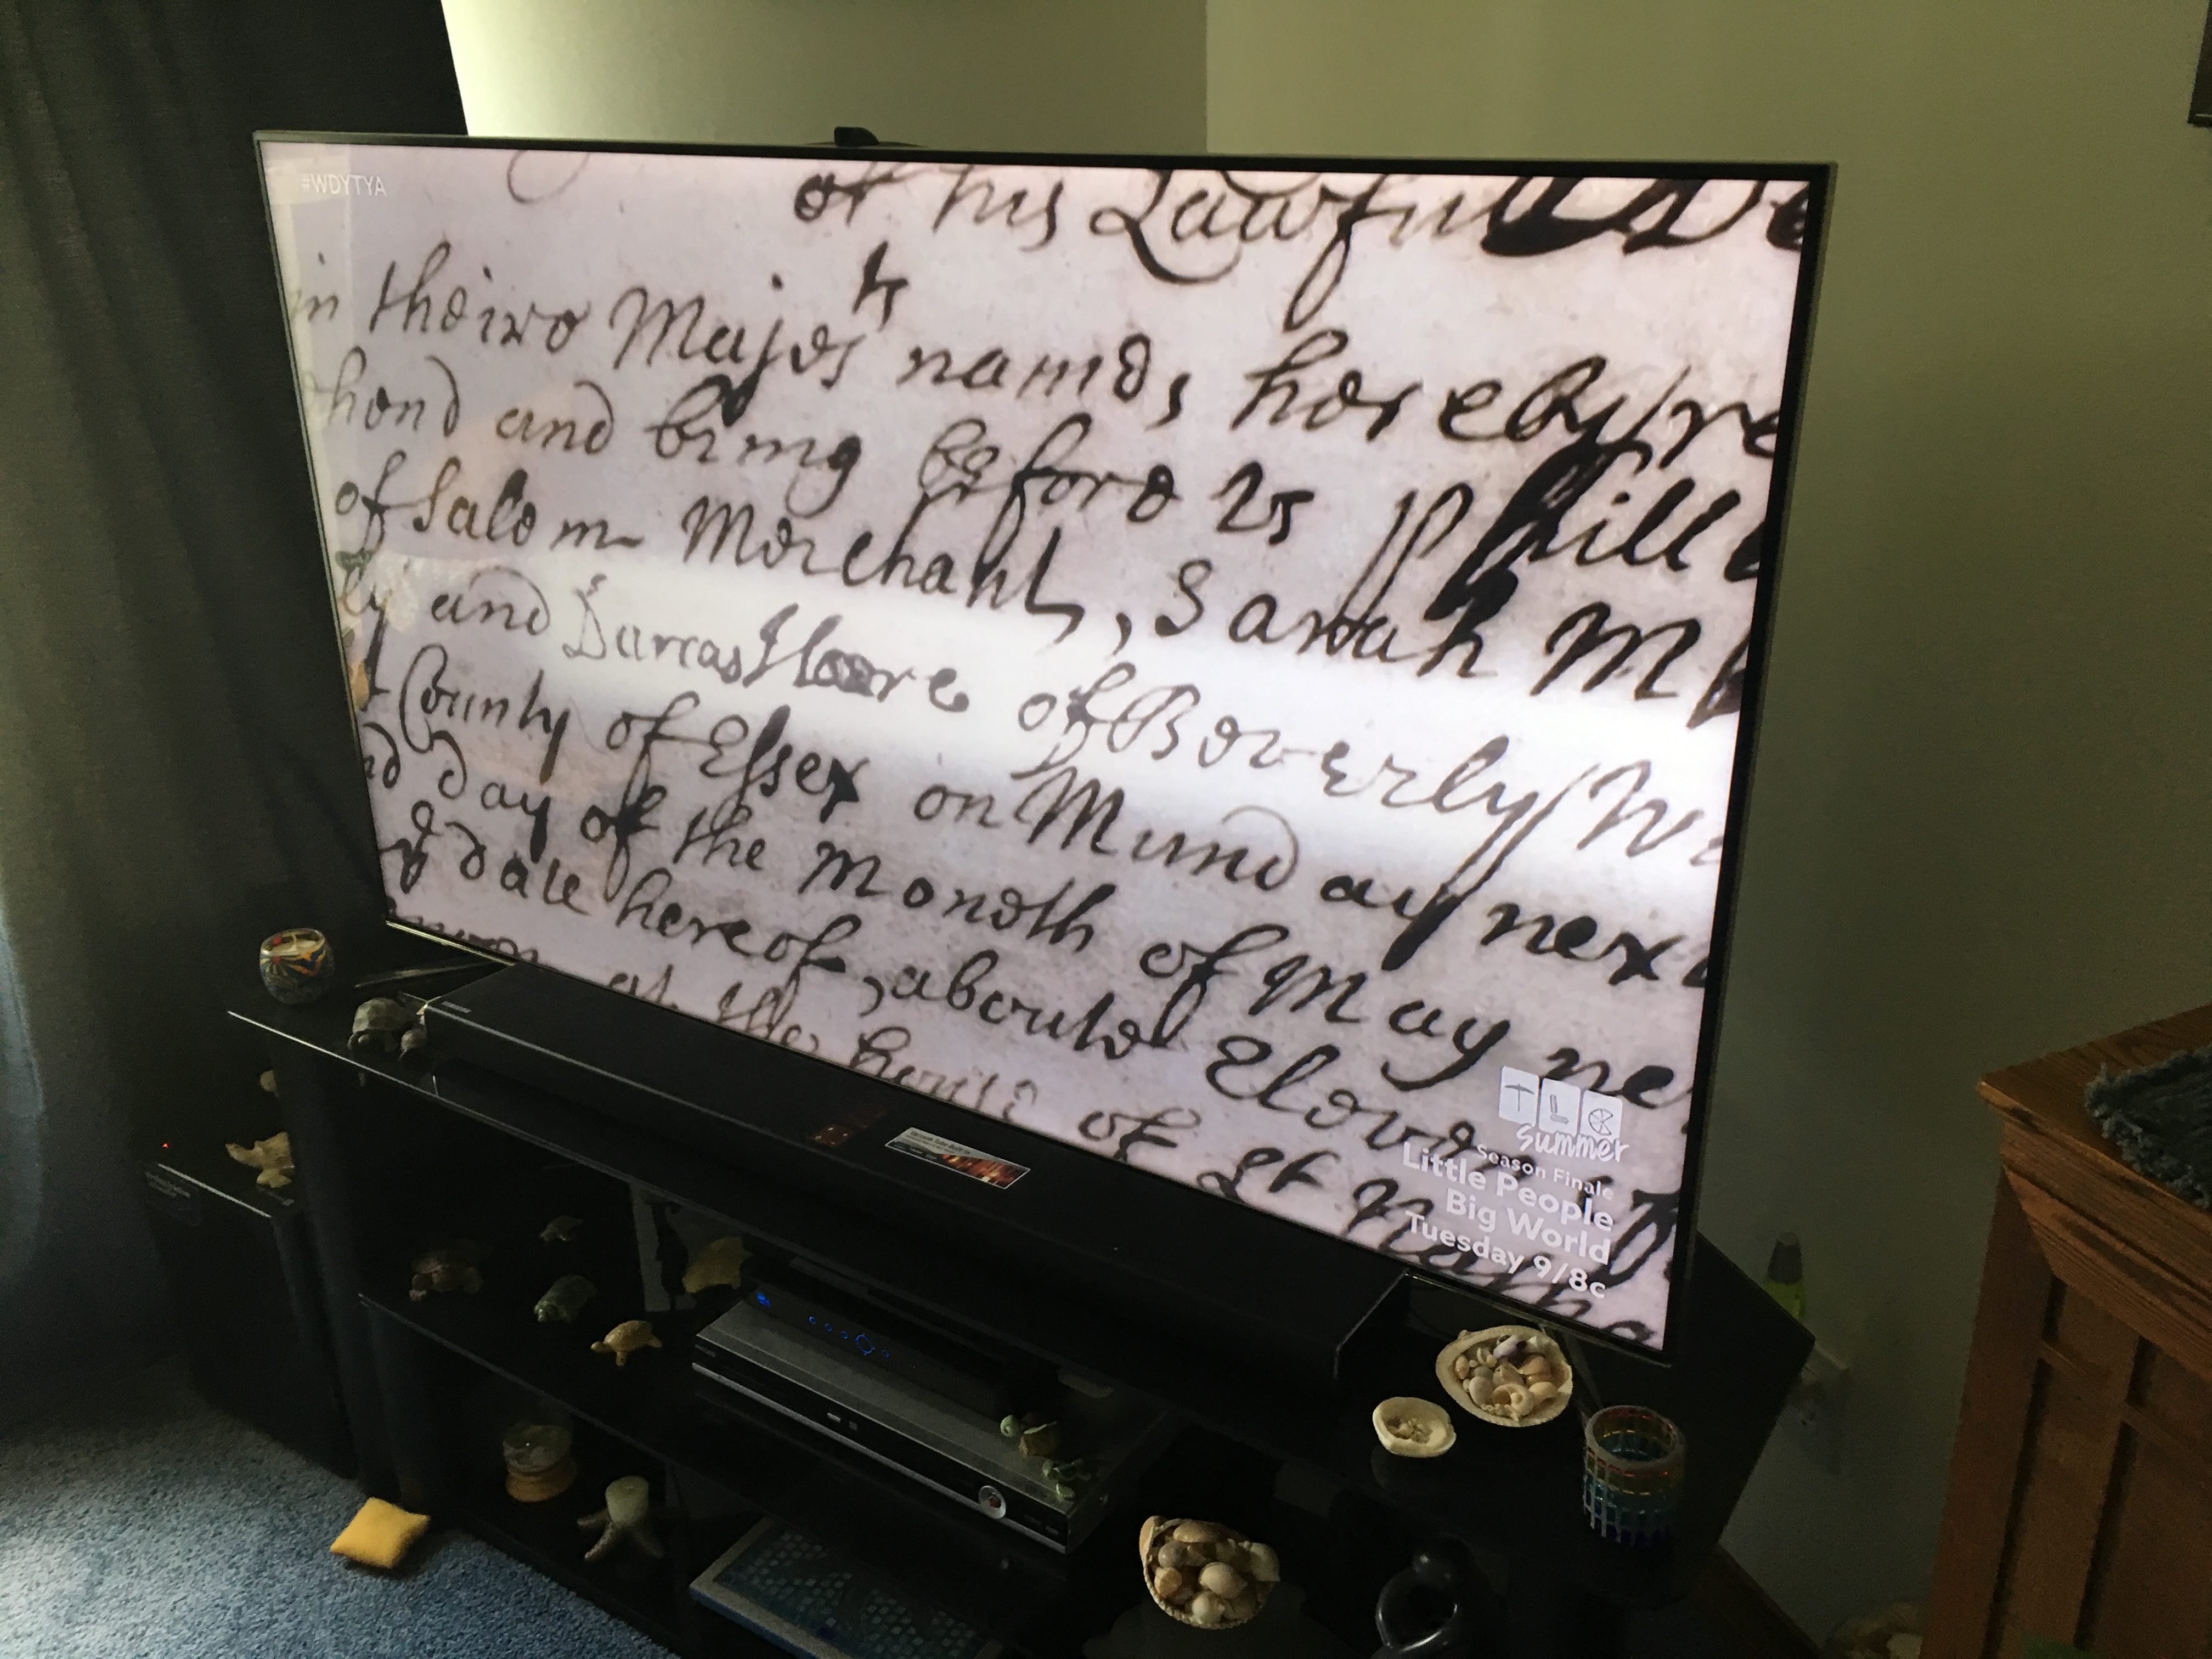 #WDYTYA
of his Lawfull De
in theire Majes ts names hereby re
hend and bring before us Phill
of Salem Merchant, Sarah M
ly and Darcas Hoare of Beverly W
County of Essex on Munday next
day of the month of May ne
date hereof, aboute Eloven
at the house of Lt Nath
TLC
summer
Season Finale
Little People
Big World
Tuesday 9/8c